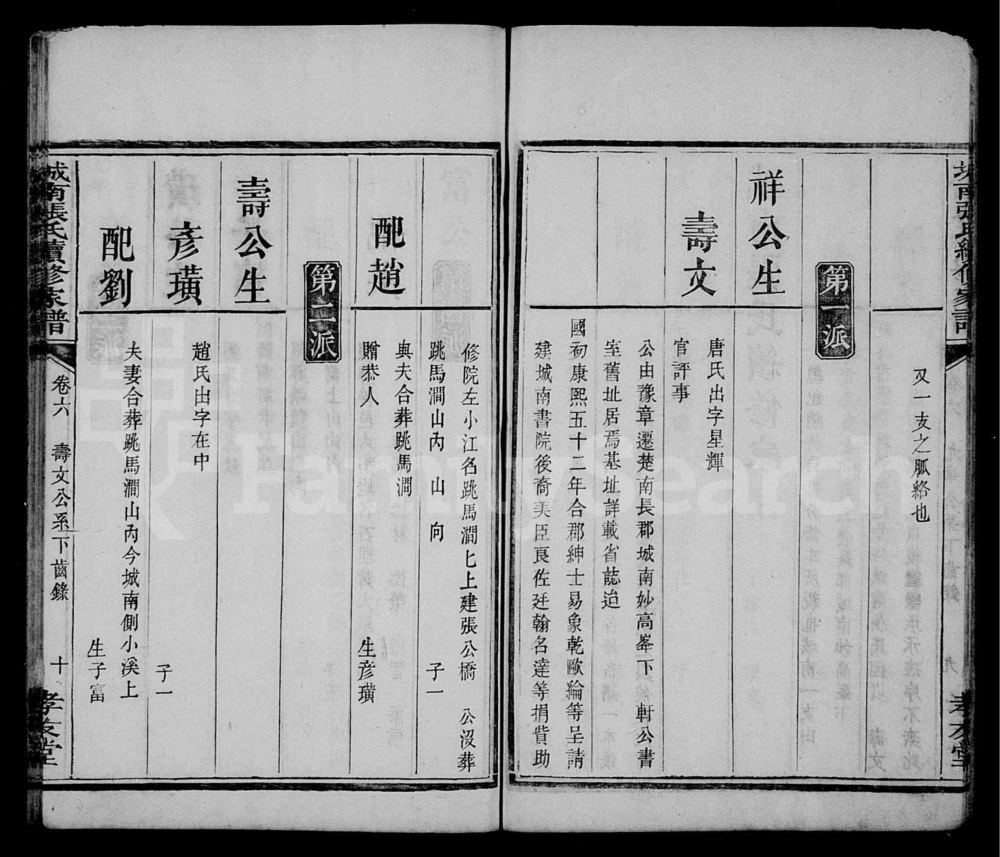 又一支之脈絡也
第一派
祥公生
壽文
唐氏出字星輝
官評事
公由豫章遷楚南長郡城南妙高峯下 軒公書
室舊址居焉基址詳載省誌迨
國初康熙五十二年合郡紳士易象乾歐綸等呈請
建城南書院後裔美臣良佐廷翰名達等捐貲助
修院左小江名跳馬澗匕上建張公橋 公沒葬
跳馬澗山內 山 向 子一
配趙
與夫合葬跳馬澗
贈恭人 生彥璜
第二派
壽公生
彥璜
趙氏出字在中 子一
配劉
夫妻合葬跳馬澗山內今城南側小溪上
生子富
城南張氏續修家譜 卷六 壽文公系下齒錄 十 孝友堂
FamilySearch